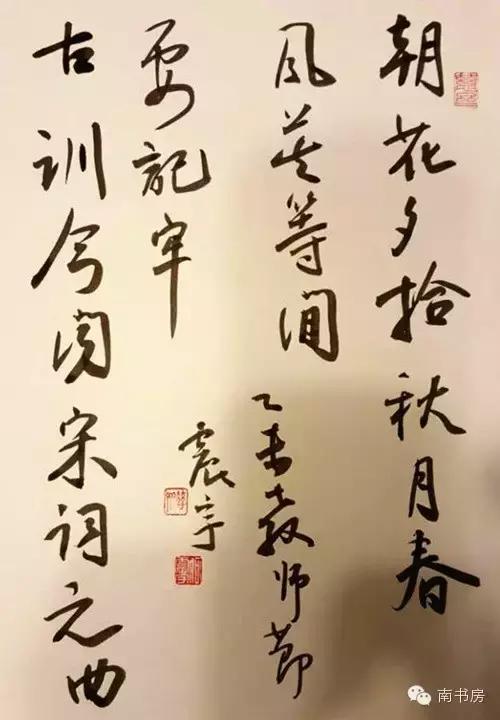 朝花夕拾秋月春
风莫等闲
乙未教师节
古訓今阅宋詞元曲
要記牢
震宇
南书房